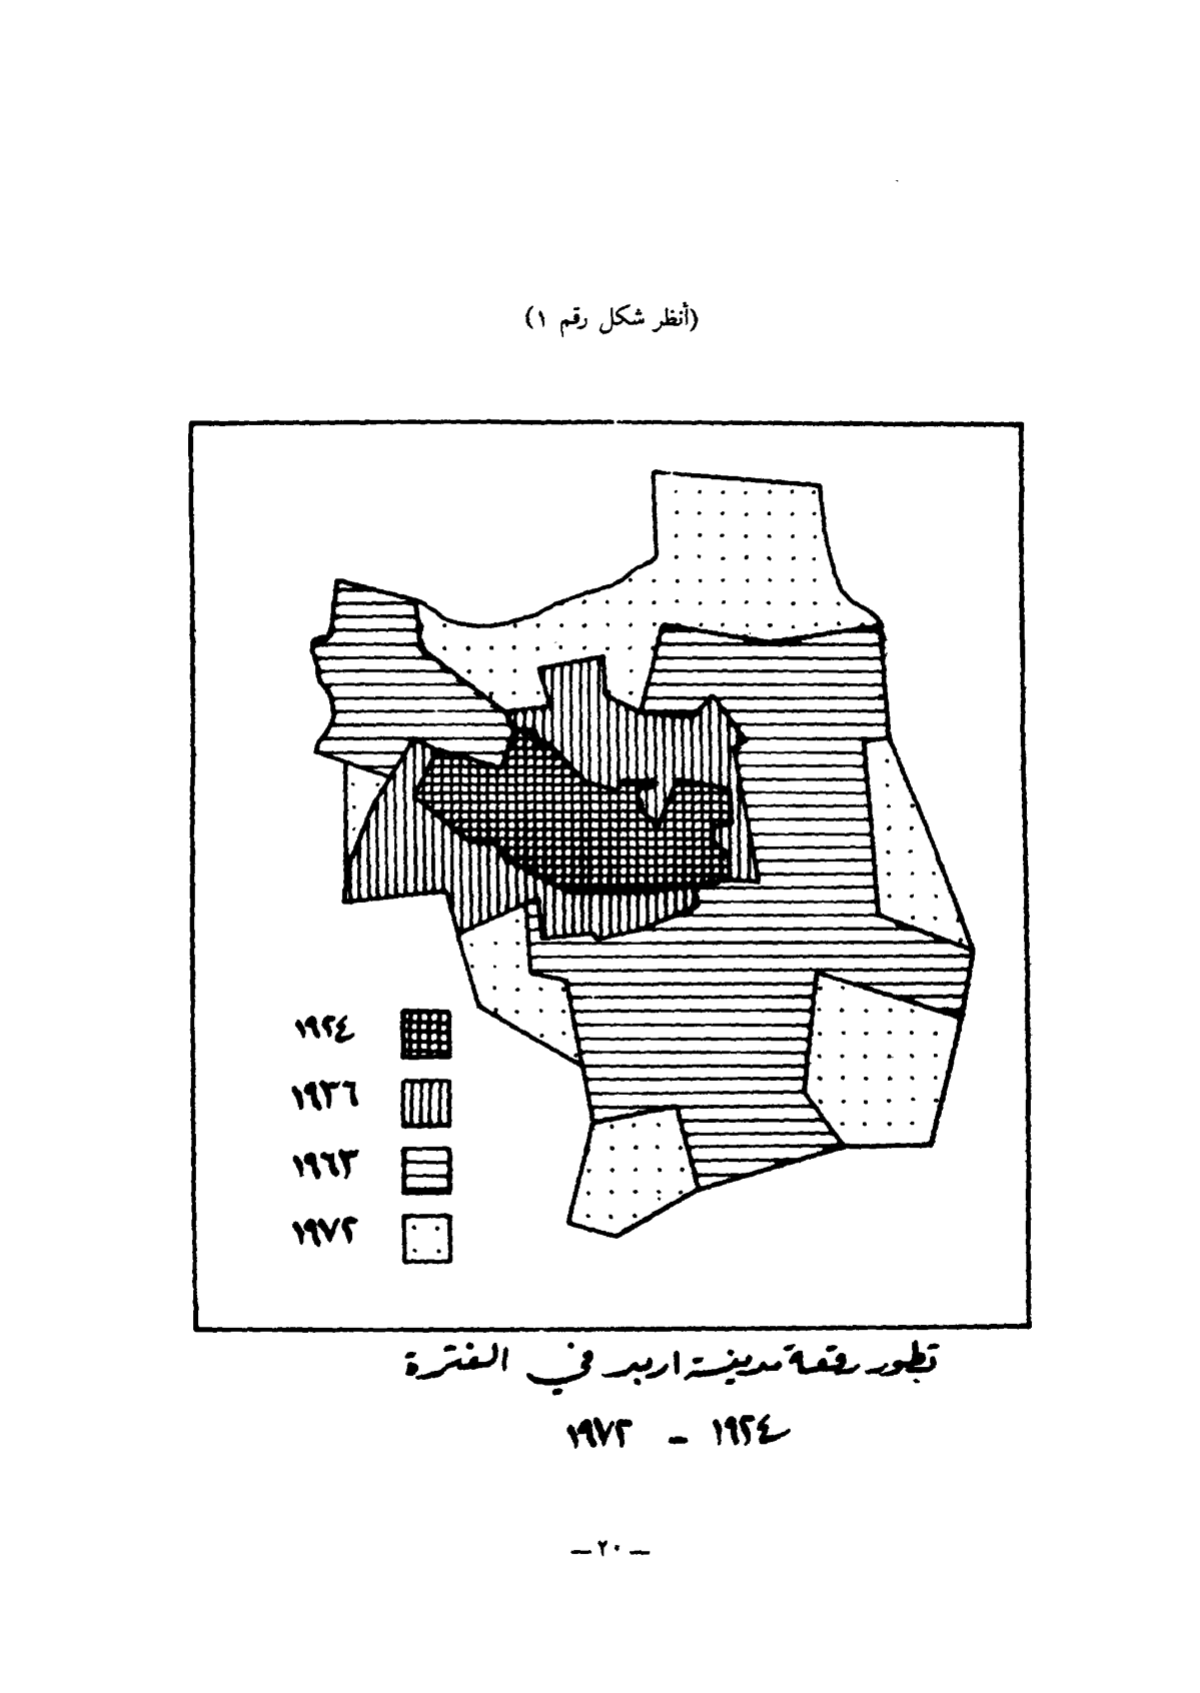 (أنظر شكل رقم ١)
١٩٢٤
١٩٣٦
١٩٦٣
١٩٧٢
تطور رقعة مدينة اربد في الفترة
١٩٢٤ - ١٩٧٢
— ٢٠ —